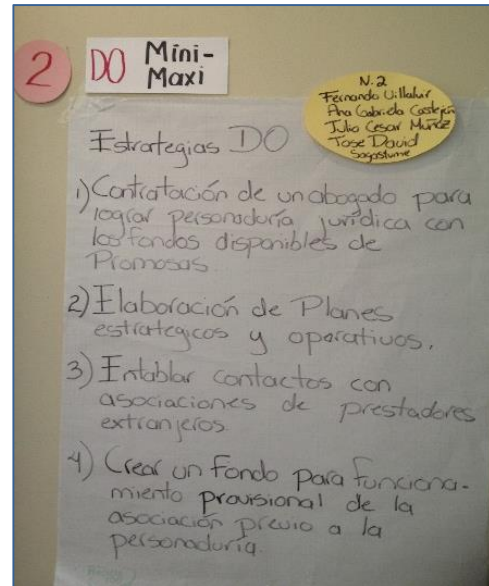 2
DO Míni-
Maxi
N.2
Fernando Villalvir
Ana Gabriela Castejón
Julio Cesar Muñoz
Jose David
Sagastume
Estrategias DO
1) Contratación de un abogado para
lograr personaduría jurídica con
los fondos disponibles de
Promosas
2) Elaboración de Planes
estrategicos y operativos.
3) Entablar contactos con
asociaciones de prestadores
extranjeros.
4) Crear un Fondo para funciona-
miento provisional de la
asociación previo a la
personaduría.